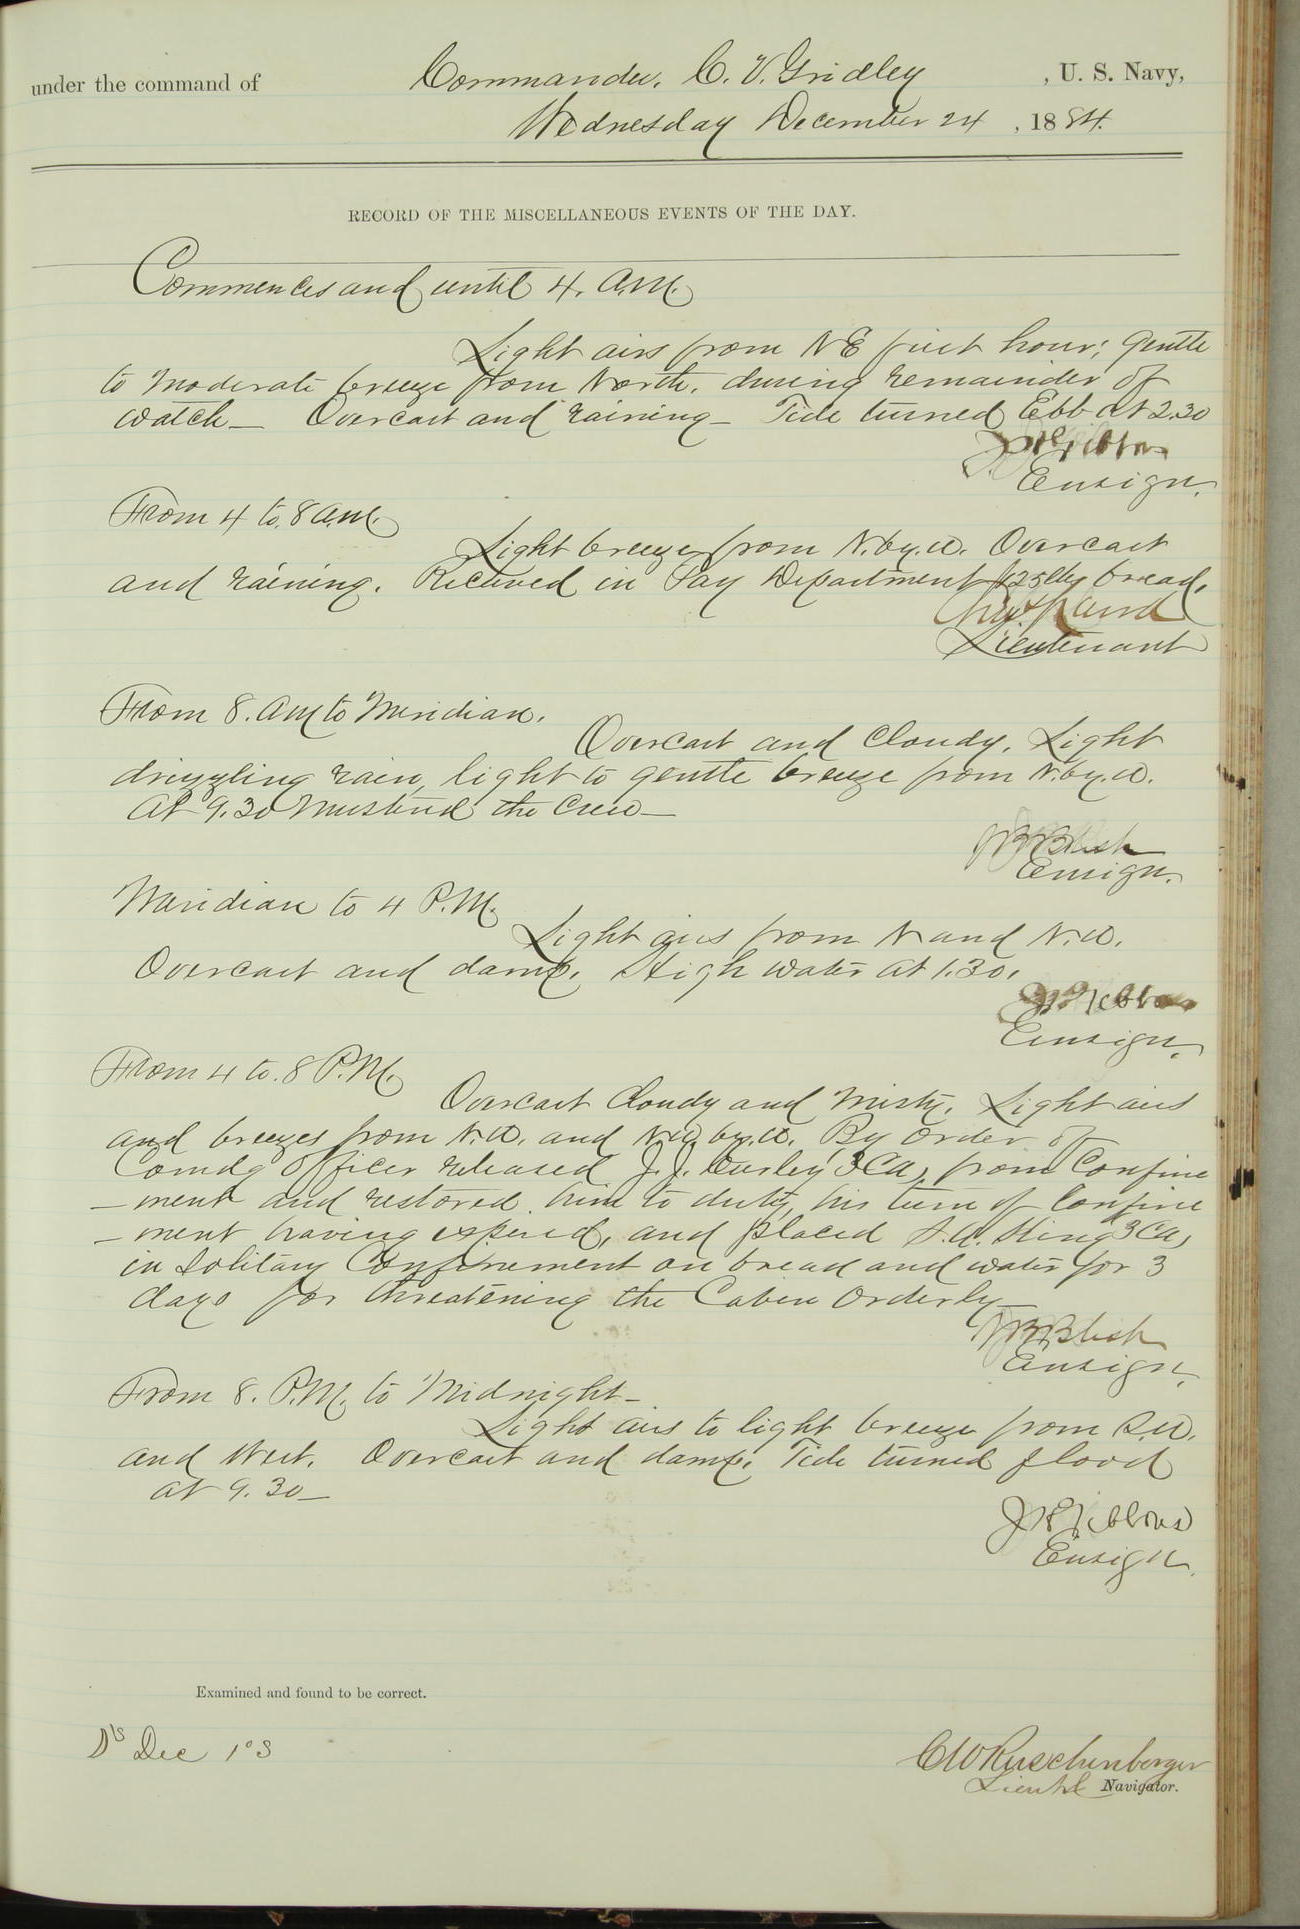 under the command of Commander. C. V. Gridley, U. S. Navy,
Wednesday December 24, 1884.
RECORD OF THE MISCELLANEOUS EVENTS OF THE DAY.
Commences and until 4. A.M.
Light airs from NE first hour; gentle
to moderate breeze from North, during remainder of
watch— Overcast and raining— Tide turned Ebb at 2.30
J H Gibbons
Ensign.
From 4 to 8 a.m.
Light breeze from N. by. W. Overcast
and raining. Received in Pay Department 125 lbs bread.
Lieutenant
From 8. am to Meridian.
Overcast and cloudy. Light
drizzling rain, light to gentle breeze from N. by. W.
At 9.30 Mustered the Crew—
J B Blish
Ensign.
Meridian to 4 P.M.
Light airs from N and N.W.
Overcast and damp. High water at 1.30.
J H Gibbons
Ensign.
From 4 to 8 P.M.
Overcast Cloudy and misty. Light airs
and breezes from N.W. and N.W. by. W. By order of
Comdg Officer released J. J. Curley 3Ca, from Confine
—ment and restored him to duty, his term of Confine
—ment having expired, and placed King 3Ca,
in Solitary Confinement on bread and water for 3
days for threatening the Cabin Orderly—
J B Blish
Ensign.
From 8. P.M. to Midnight—
Light airs to light breeze from S.W.
and West. Overcast and damp. Tide turned flood
at 9.30—
J H Gibbons
Ensign.
Examined and found to be correct.
Dec
C W Ruschenberger
Lieut Navigator.